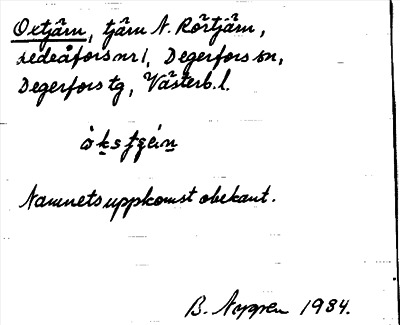 Oxtjärn, tjärn N. Rörtjärn,
Ledeåfors nr 1, Degerfors sn,
Degerfors tg, Västerb. l.
Namnets uppkomst obekant.
B. 1934.